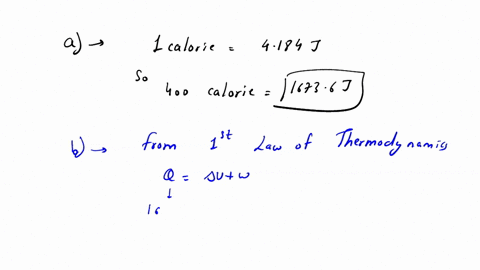 a) → 1 calorie = 4.184 J
So
400 calorie = 1673.6 J
b) → from 1st Law of Thermodynamics
Q = ΔU+W
↓
16